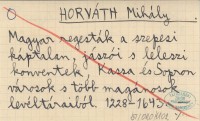 HORVÁTH Mihály.
Magyar regesták a szepesi
káptalan, jászói s leleszi
konventek, Kassa és Sopron
városok s több magánosok
levéltáraiból. 1228-1643.